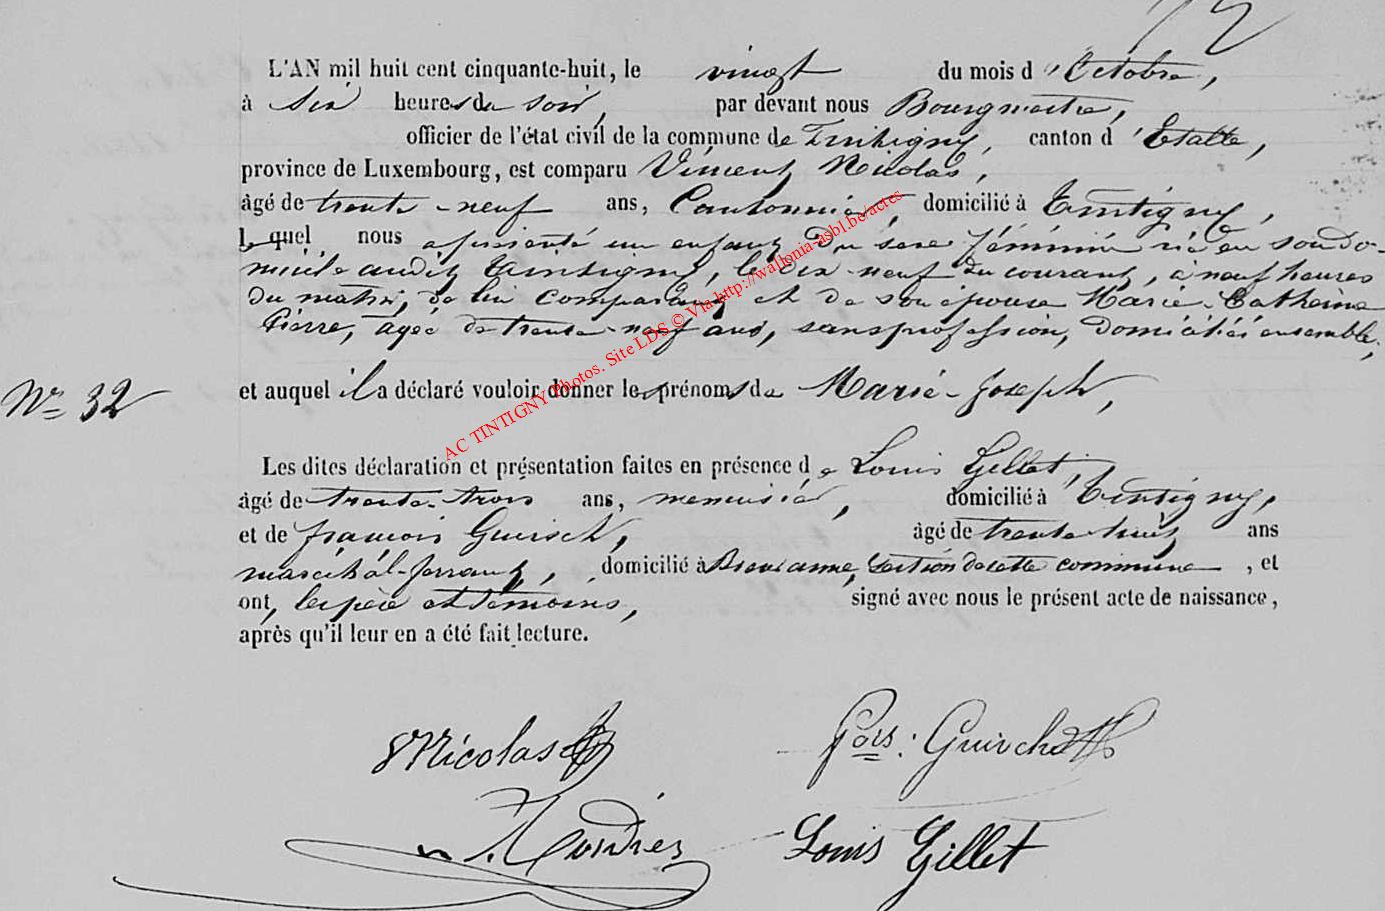 L'AN mil huit cent cinquante-huit, le vingt du mois d'Octobre,
à six heures du soir, par devant nous Bourgmestre,
officier de l'état civil de la commune de Tintigny, canton d'Etalle,
province de Luxembourg, est comparu Vincent Nicolas,
âgé de trente-neuf ans, Cantonnier, domicilié à Tintigny,
lequel nous a présenté un enfant du sexe féminin né en son do-
micile audit Tintigny, le dix-neuf du courant, à neuf heures
du matin, de lui comparant et de son épouse Marie-Catherine
Pierre, âgée de trente-neuf ans, sans profession, domiciliés ensemble,
et auquel il a déclaré vouloir donner les prénoms de Marie-Joseph,
No 32
Les dites déclaration et présentation faites en présence de Louis Gillet,
âgé de trente-trois ans, menuisier, domicilié à Tintigny,
et de François Guirsch, âgé de trente-huit ans
maréchal-ferrant, domicilié à section de cette commune, et
ont, les père et témoins, signé avec nous le présent acte de naissance,
après qu'il leur en a été fait lecture.
VNicolas Fçois: Guirch
Louis Gillet
AC TINTIGNY Photos. Site LDS © Via http://wallonia-asbl.be/actes